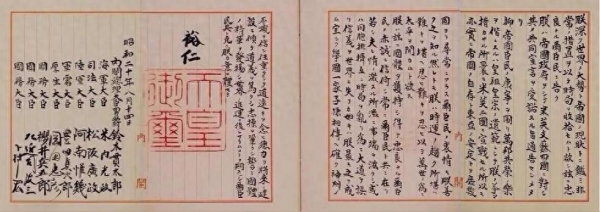 朕深ク世界ノ大勢ト帝國ノ現狀トニ鑑ミ非
常ノ措置ヲ以テ時局ヲ收拾セムト欲シ茲ニ忠
良ナル爾臣民ニ告ク
朕ハ帝國政府ヲシテ米英支蘇四國ニ對シ
其ノ共同宣言ヲ受諾スル旨通告セシメタリ
抑帝國臣民ノ康寧ヲ圖リ萬邦共榮ノ樂
ヲ偕ニスルハ皇祖皇宗ノ遺範ニシテ朕ノ拳々
措カサル所曩ニ米英二國ニ宣戰セル所以モ
亦實ニ帝國ノ自存ト東亞ノ安定トヲ庶幾
固ヨリ尋常ニアラス爾臣民ノ衷情モ朕善ク
之ヲ知ル然レトモ朕ハ時運ノ趨ク所堪ヘ
難キヲ堪ヘ忍ヒ難キヲ忍ヒ以テ萬世ノ爲ニ
太平ヲ開カムト欲ス
朕ハ茲ニ國體ヲ護持シ得テ忠良ナル爾臣
民ノ赤誠ニ信倚シ常ニ爾臣民ト共ニ在リ
若シ夫レ情ノ激スル所濫ニ事端ヲ滋クシ或
ハ同胞排擠互ニ時局ヲ亂リ爲ニ大道ヲ誤
リ信義ヲ世界ニ失フカ如キハ朕最モ之ヲ戒
ム宜シク擧國一家子孫相傳ヘ確ク神州ノ
内閣
不滅ヲ信シ任重クシテ道遠キヲ念ヒ總力ヲ將來ノ建設
ニ傾ケ道義ヲ篤クシ志操ヲ鞏クシ誓テ國體
ノ精華ヲ發揚シ世界ノ進運ニ後レサラムコトヲ期スヘシ爾臣
民其レ克ク朕カ意ヲ體セヨ
裕仁
天皇御璽
昭和二十年八月十四日
内閣總理大臣男爵 鈴木貫太郎
海軍大臣 米内光政
司法大臣 松阪廣政
陸軍大臣 阿南惟幾
軍需大臣 豊田貞次郎
厚生大臣 岡田忠彦
國務大臣 櫻井兵五郎
國務大臣 左近司政三
國務大臣 下村宏
内閣